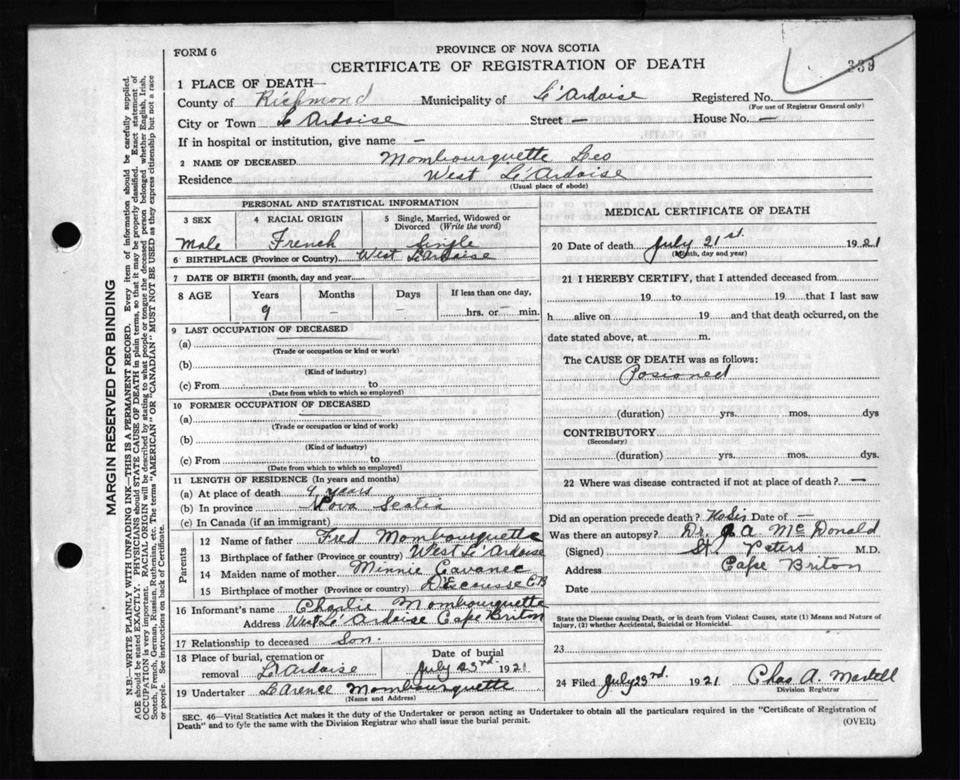 FORM 6
PROVINCE OF NOVA SCOTIA
CERTIFICATE OF REGISTRATION OF DEATH
339
1 PLACE OF DEATH—
County of Richmond Municipality of L'Ardoise Registered No.
(For use of Registrar General only)
City or Town L Ardoise Street — House No. —
If in hospital or institution, give name —
2 NAME OF DECEASED Mombourquette Leo
Residence West L'Ardoise
(Usual place of abode)
PERSONAL AND STATISTICAL INFORMATION
3 SEX 4 RACIAL ORIGIN 5 Single, Married, Widowed or Divorced (Write the word)
Male French Single
6 BIRTHPLACE (Province or Country) West L'Ardoise
7 DATE OF BIRTH (month, day and year)
8 AGE Years Months Days If less than one day,
9 — — hrs. or min.
9 LAST OCCUPATION OF DECEASED
(a)
(Trade or occupation or kind or work)
(b)
(Kind of industry)
(c) From to
(Date from which to which so employed)
10 FORMER OCCUPATION OF DECEASED
(a)
(Trade or occupation or kind of work)
(b)
(Kind of industry)
(c) From to
(Date from which to which so employed)
11 LENGTH OF RESIDENCE (In years and months)
(a) At place of death 9 years
(b) In province Nova Scotia
(c) In Canada (if an immigrant)
Parents
12 Name of father Fred Mombourquette
13 Birthplace of father (Province or country) West L'Ardoise
14 Maiden name of mother Minnie Cavanec
15 Birthplace of mother (Province or country) D'Escousse C.B
16 Informant's name Charlie Mombourquette
Address West L'Ardoise Cape Briton
17 Relationship to deceased Son.
18 Place of burial, cremation or removal L'Ardoise
Date of burial July 23rd. 1921
19 Undertaker Larence Mombourquette
(Name and Address)
MEDICAL CERTIFICATE OF DEATH
20 Date of death July 21st. 1921
(Month, day and year)
21 I HEREBY CERTIFY, that I attended deceased from
19 to 19 that I last saw
h alive on 19 and that death occurred, on the
date stated above, at m.
The CAUSE OF DEATH was as follows:
Posioned
(duration) yrs. mos. dys
CONTRIBUTORY
(Secondary)
(duration) yrs. mos. dys.
22 Where was disease contracted if not at place of death? —
Did an operation precede death? No Sir Date of —
Was there an autopsy? Dr. A McDonald
(Signed) St. Peters M.D.
Address Cape Briton
Date
State the Disease causing Death, or in death from Violent Causes, state (1) Means and Nature of Injury, (2) whether Accidental, Suicidal or Homicidal.
23
24 Filed July 23rd 1921 Chas A. Martell
Division Registrar
SEC. 46—Vital Statistics Act makes it the duty of the Undertaker or person acting as Undertaker to obtain all the particulars required in the "Certificate of Registration of
Death" and to fyle the same with the Division Registrar who shall issue the burial permit. (OVER)
MARGIN RESERVED FOR BINDING
N.B.—WRITE PLAINLY WITH UNFADING INK—THIS IS A PERMANENT RECORD. Every item of information should be carefully supplied.
AGE should be stated EXACTLY. PHYSICIANS should STATE CAUSE OF DEATH in plain terms, so that it may be properly classified. Exact statement of
OCCUPATION is very important. RACIAL ORIGIN will be described by stating to what people or tongue the deceased person belonged whether English, Irish,
Scotch, French, German, Russian, Ruthenian, etc. The terms "AMERICAN" OR "CANADIAN" MUST NOT BE USED as they express citizenship but not a race
or people. See instructions on back of Certificate.